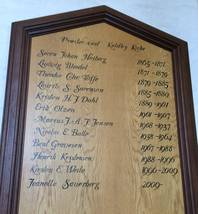 Præster ved Keldby Kirke
Søren Johan Heiberg 1865-1871
Ludvig Wedel 1871-1879
Theodor Chr. 1879-1885
Laurits S. Sørensen 1885-1889
Kristen H J Dahl 1889-1901
Erik Olsen 1901-1907
Marcus J. A. F. Jensen 1908-1937
Nicolai E. Balle 1938-1964
Bent Grønesen 1967-1988
Henrik Kristensen 1988-1996
Kirsten C. 1996-2009
Jeanette Sauerberg 2009-